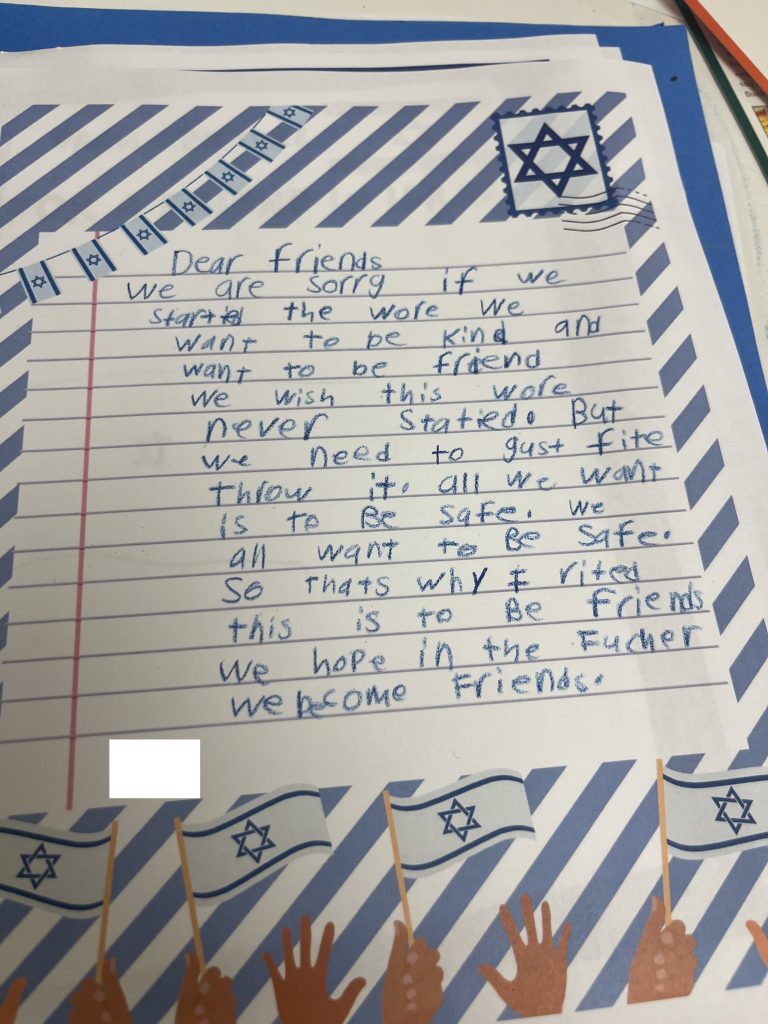 Dear friends
we are sorry if we
started the wore we
want to be kind and
want to be friend
we wish this wore
never Statied. But
we need to gust fite
throw it. all we want
is to Be safe. we
all want to Be Safe.
So thats why I rited
this is to Be friends
we hope in the Fucher
we become Friends.